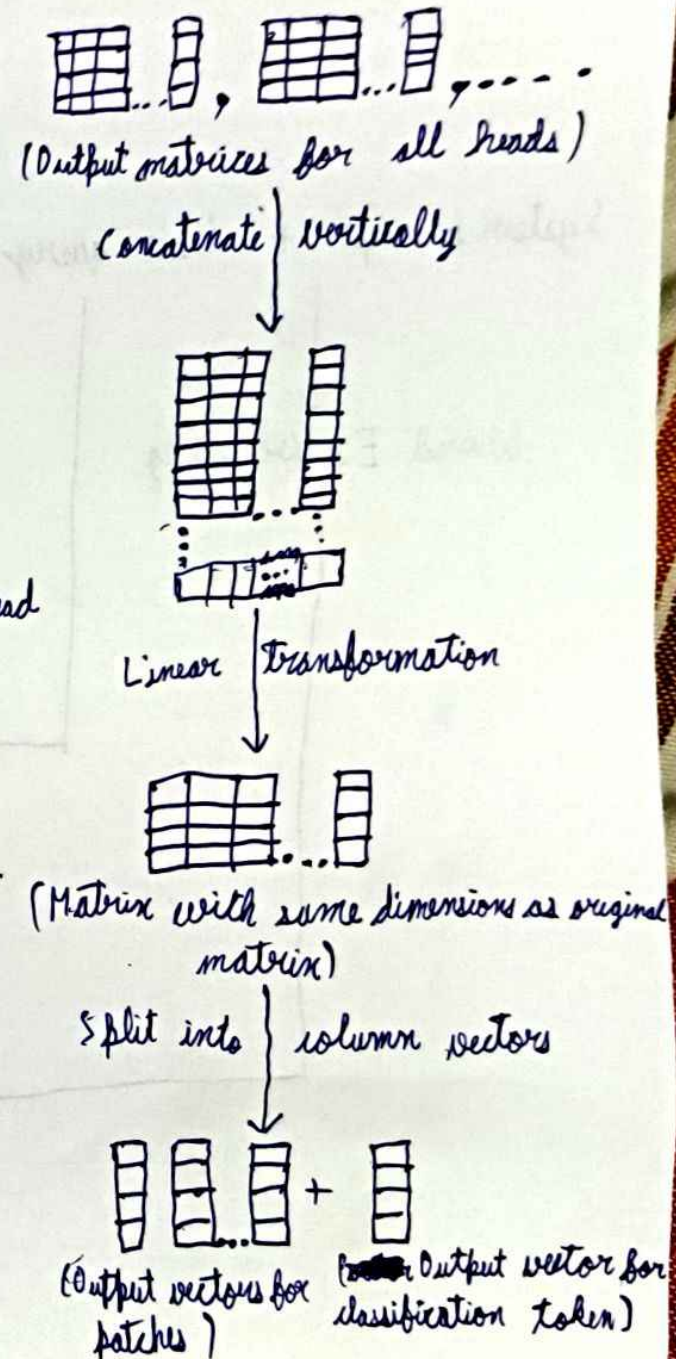 (Output matrices for all heads)
Concatenate vertically
ad
Linear transformation
(Matrix with same dimensions as original
matrix)
Split into column vectors
+
(Output vectors for
patches)
Output vector for
classification token)